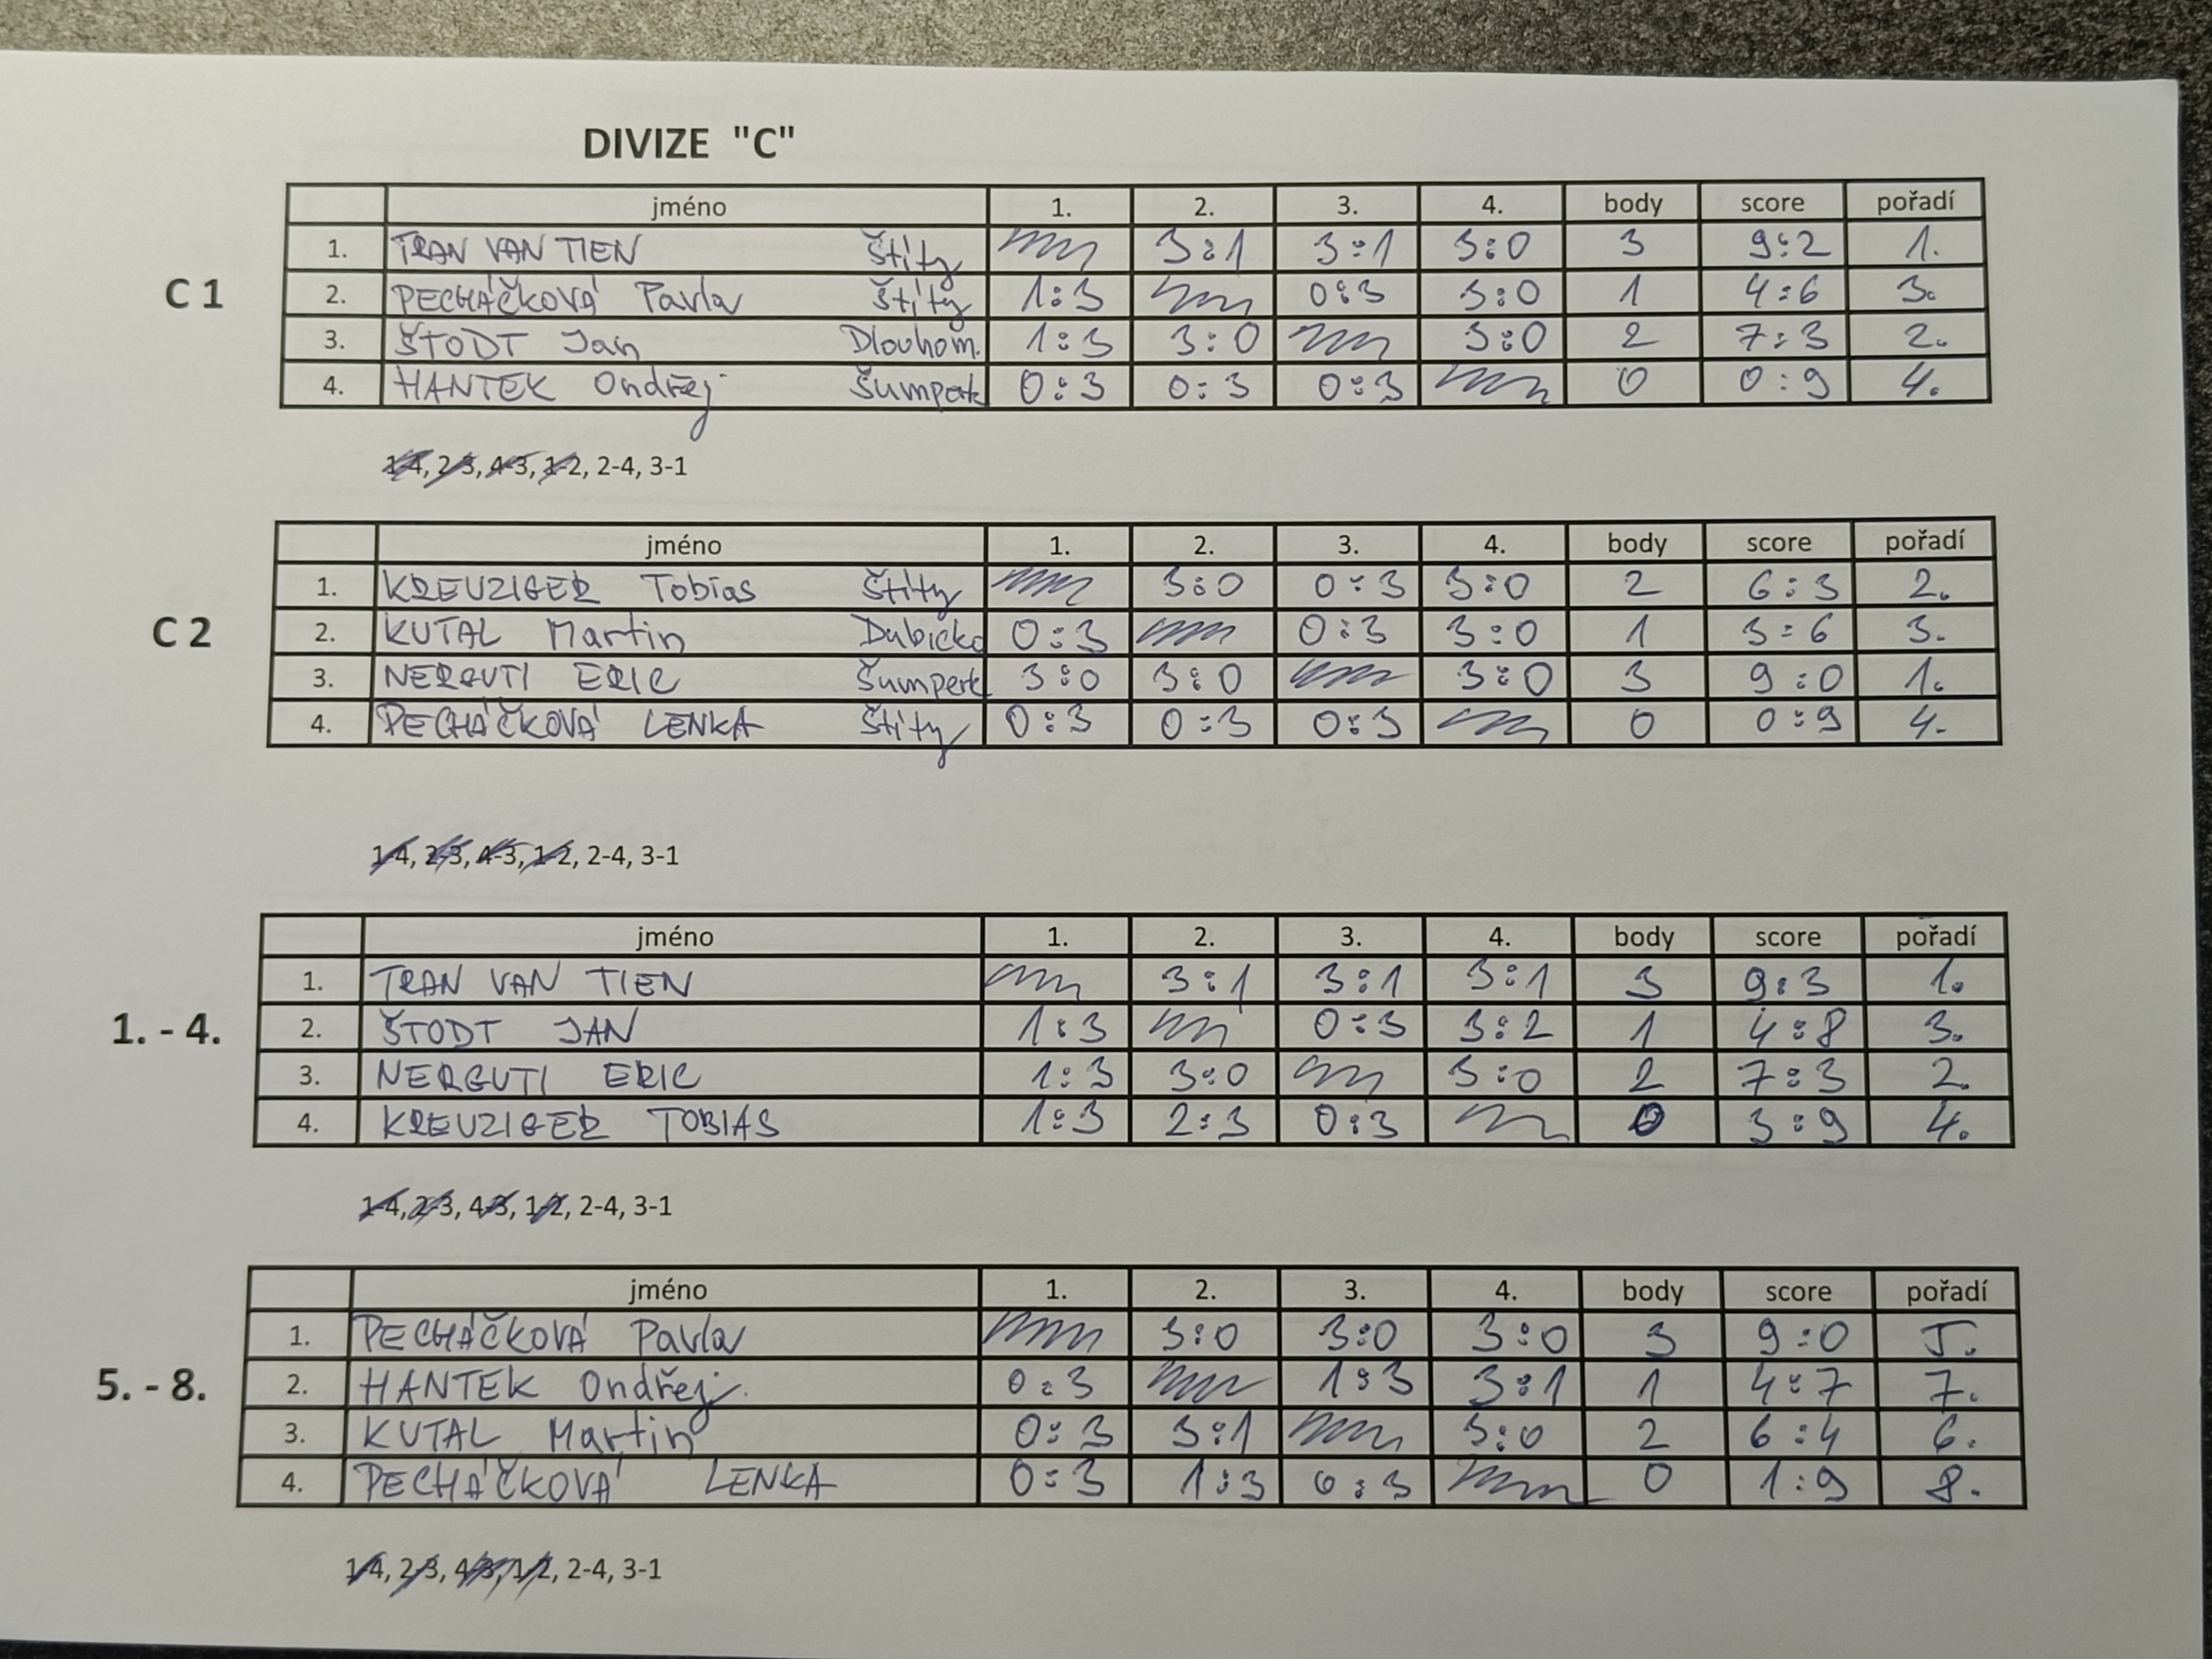 DIVIZE "C"
jméno 1. 2. 3. 4. body score pořadí
C 1
1. TRAN VAN TIEN Štíty 3:1 3:1 3:0 3 9:2 1.
2. PECHÁČKOVÁ Pavla Štíty 1:3 0:3 3:0 1 4:6 3.
3. ŠTODT Jan Dlouhom. 1:3 3:0 3:0 2 7:3 2.
4. HANTEK Ondřej Šumperk 0:3 0:3 0:3 0 0:9 4.
1-4, 2-3, 4-3, 1-2, 2-4, 3-1
jméno 1. 2. 3. 4. body score pořadí
C 2
1. KREUZIGER Tobias Štíty 3:0 0:3 3:0 2 6:3 2.
2. KUTAL Martin Dubicko 0:3 0:3 3:0 1 3:6 3.
3. NERGUTI ERIC Šumperk 3:0 3:0 3:0 3 9:0 1.
4. PECHÁČKOVÁ LENKA Štíty 0:3 0:3 0:3 0 0:9 4.
1-4, 2-3, 4-3, 1-2, 2-4, 3-1
jméno 1. 2. 3. 4. body score pořadí
1. - 4.
1. TRAN VAN TIEN 3:1 3:1 3:1 3 9:3 1.
2. ŠTODT JAN 1:3 0:3 3:2 1 4:8 3.
3. NERGUTI ERIC 1:3 3:0 3:0 2 7:3 2.
4. KREUZIGER TOBIAS 1:3 2:3 0:3 0 3:9 4.
1-4, 2-3, 4-3, 1-2, 2-4, 3-1
jméno 1. 2. 3. 4. body score pořadí
5. - 8.
1. PECHÁČKOVÁ Pavla 3:0 3:0 3:0 3 9:0 5.
2. HANTEK Ondřej 0:3 1:3 3:1 1 4:7 7.
3. KUTAL Martin 0:3 3:1 3:0 2 6:4 6.
4. PECHÁČKOVÁ LENKA 0:3 1:3 0:3 0 1:9 8.
1-4, 2-3, 4-3, 1-2, 2-4, 3-1